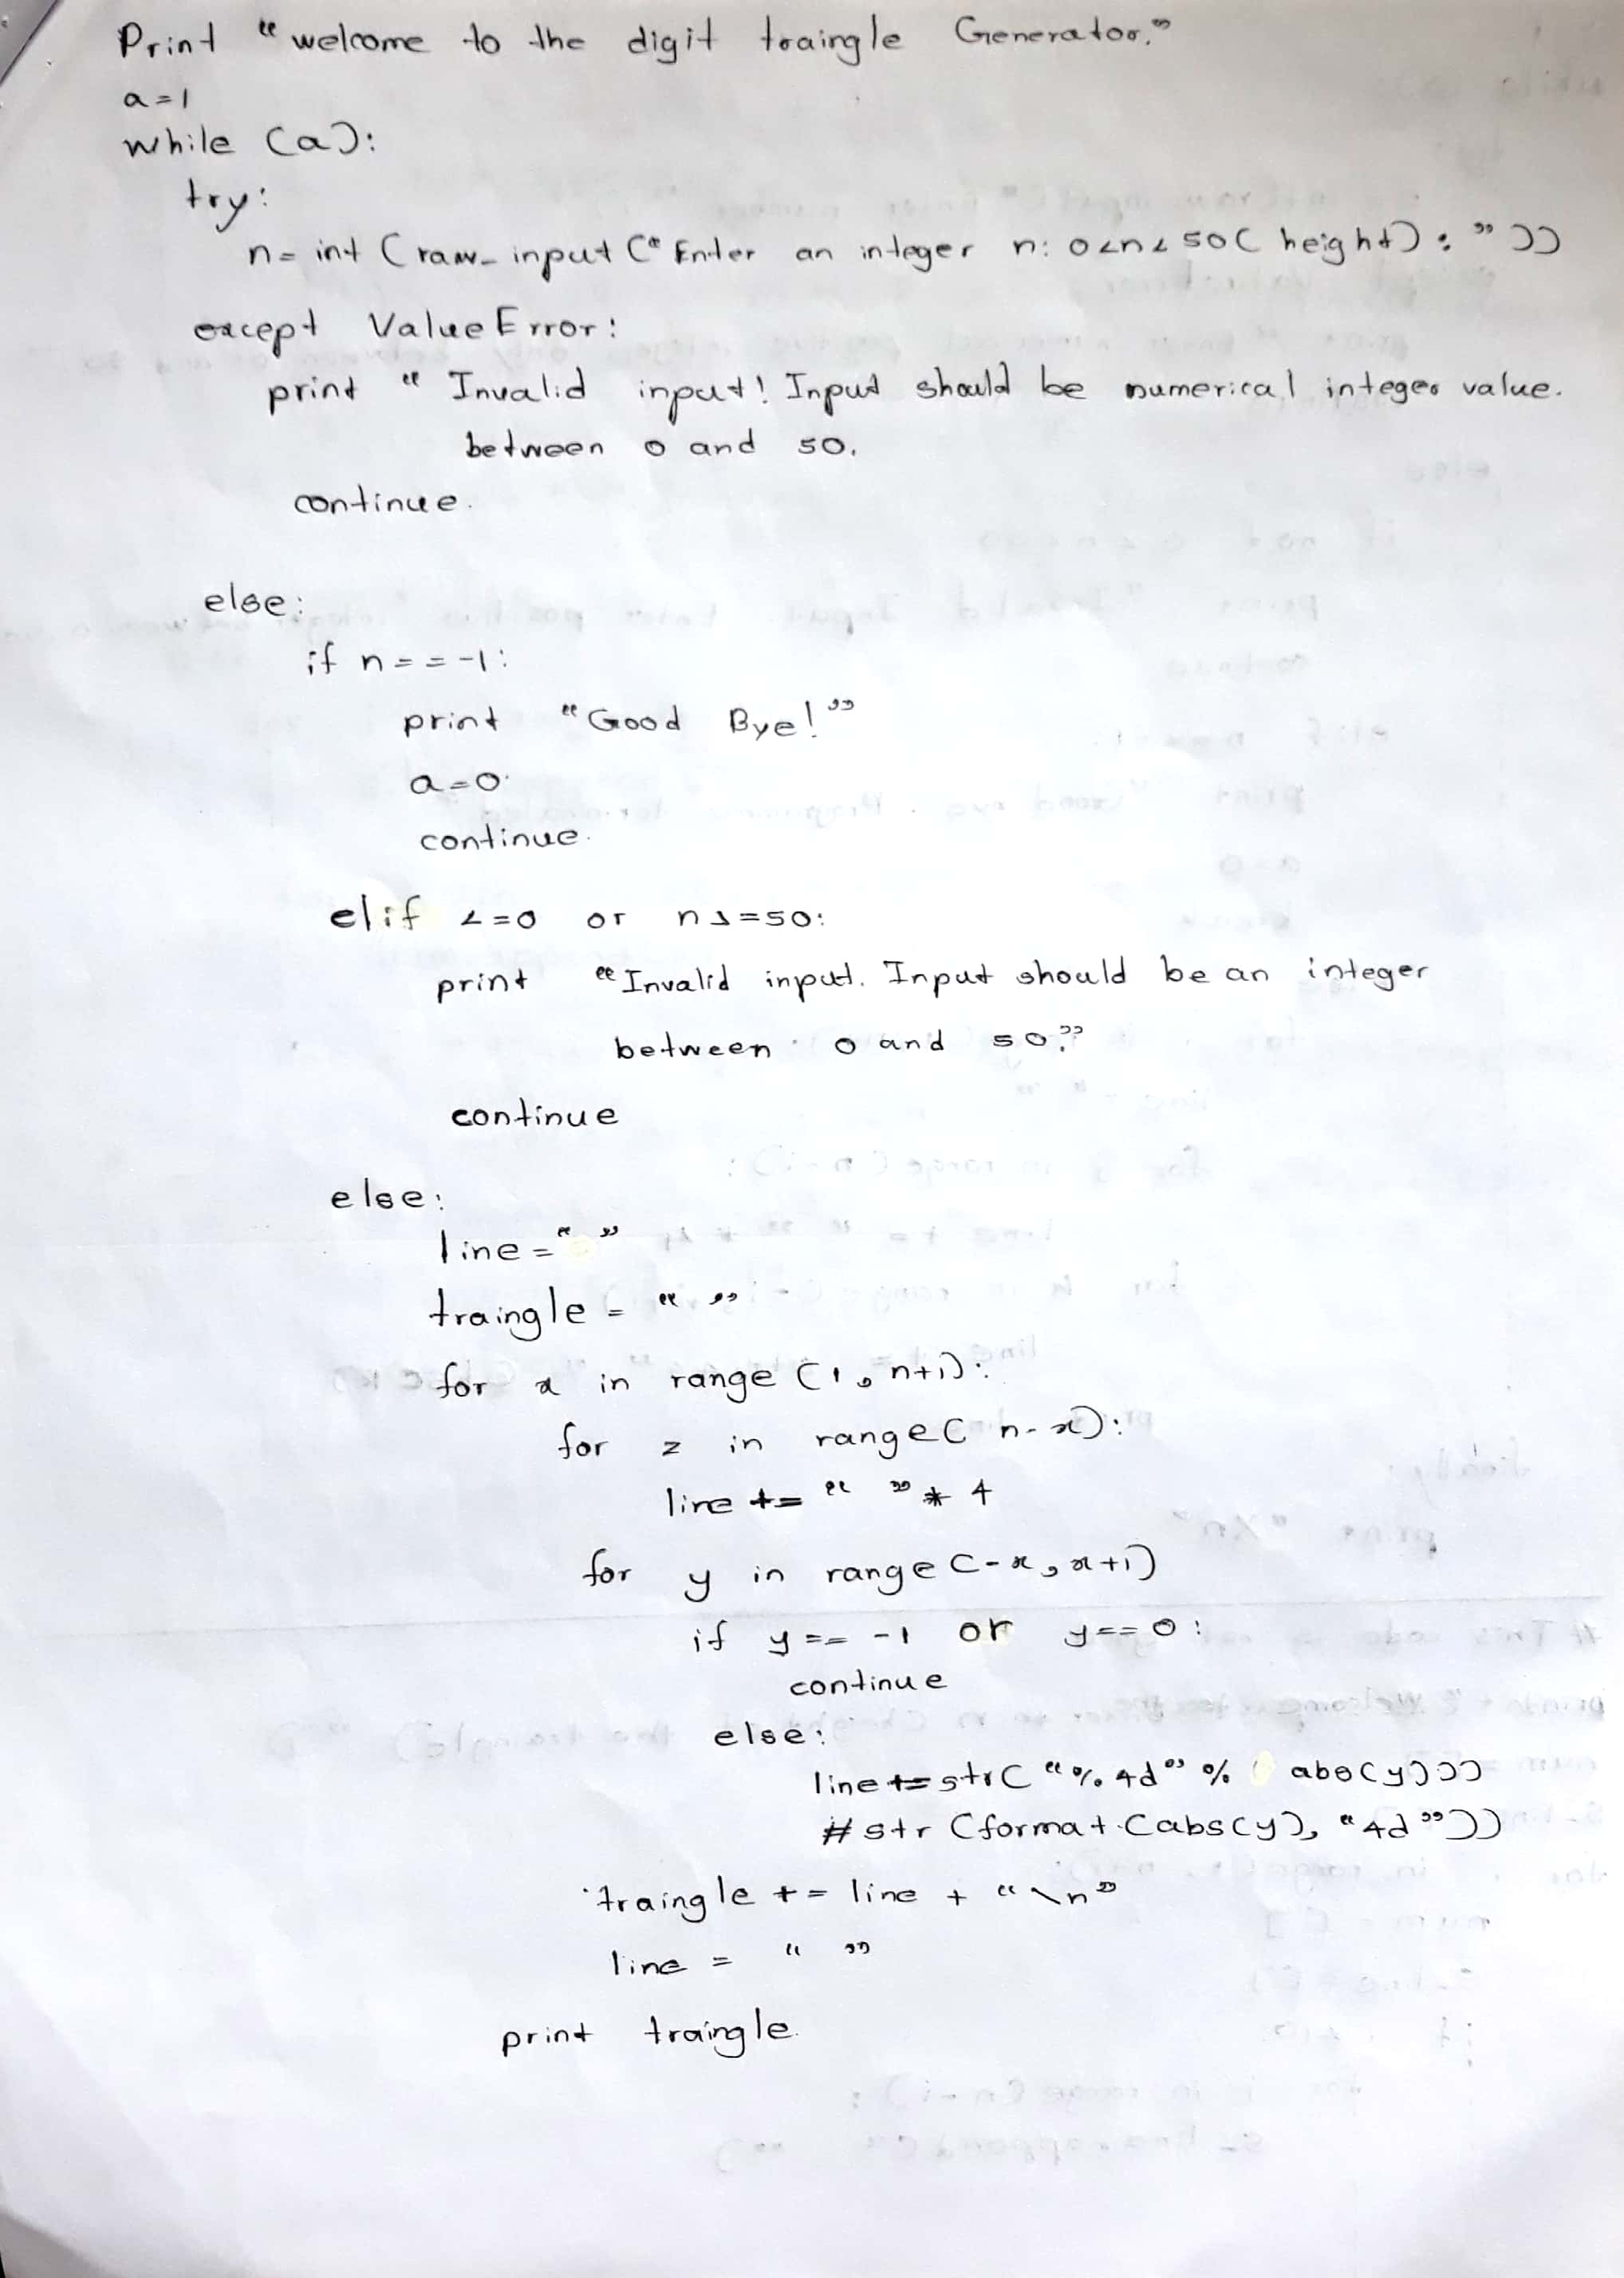 Print “welcome to the digit traingle Generator.”
a=1
while (a):
try:
n= int (raw_input (“Enter an integer n: 0<n<50( height) : ”))
except ValueError:
print “ Invalid input! Input should be numerical integer value.
between 0 and 50.
continue.
else:
if n==-1:
print “Good Bye!”
a=0
continue.
elif <=0 or n>=50:
print “Invalid input. Input should be an integer
between 0 and 50.”
continue
else:
line=“ ”
traingle = “ ”
for x in range (1, n+1):
for z in range( n-x):
line += “ ” * 4
for y in range (-x, x+1)
if y == -1 or y==0:
continue
else:
line+=str( “%4d” % abs(y)))
# str (format (abs(y), “4d”))
traingle += line + “\n”
line = “ ”
print traingle.